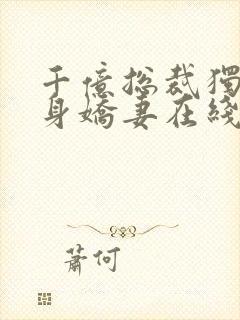 千億總裁獨
身嬌妻在綫
蕭何